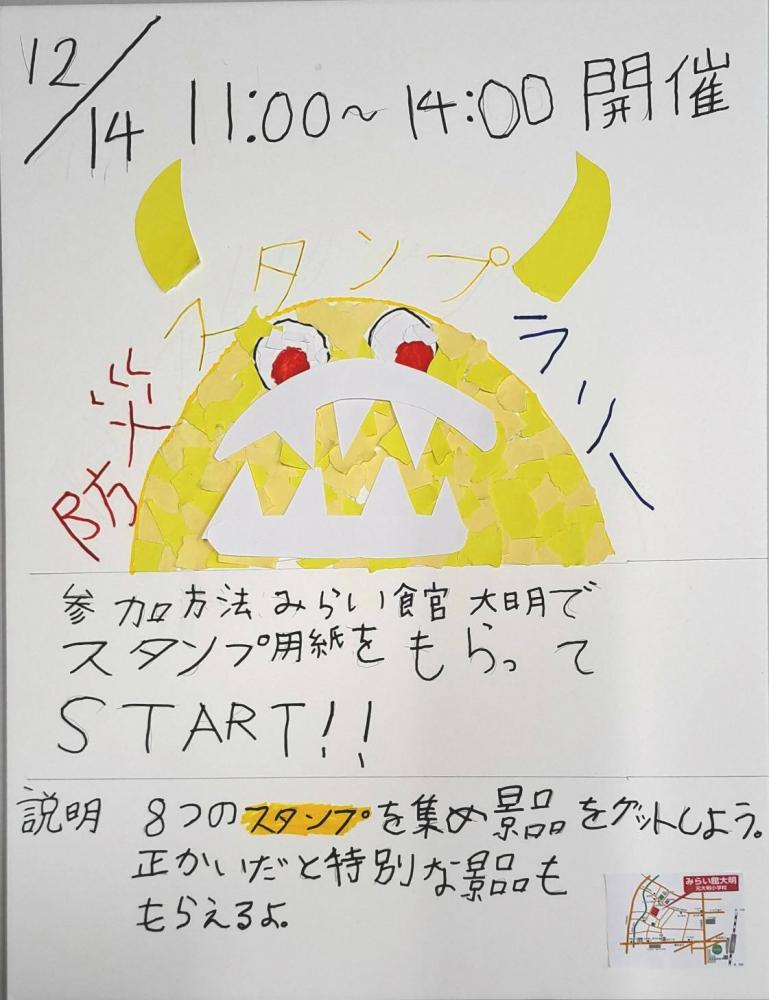 12/14 11:00~14:00 開催
防災
スタンプ
ラリー
参加方法 みらい館 大明で
スタンプ用紙をもらって
START!!
説明 8つのスタンプを集め景品をゲットしよう。
正かいだと特別な景品も
もらえるよ。
みらい館大明
元大明小学校